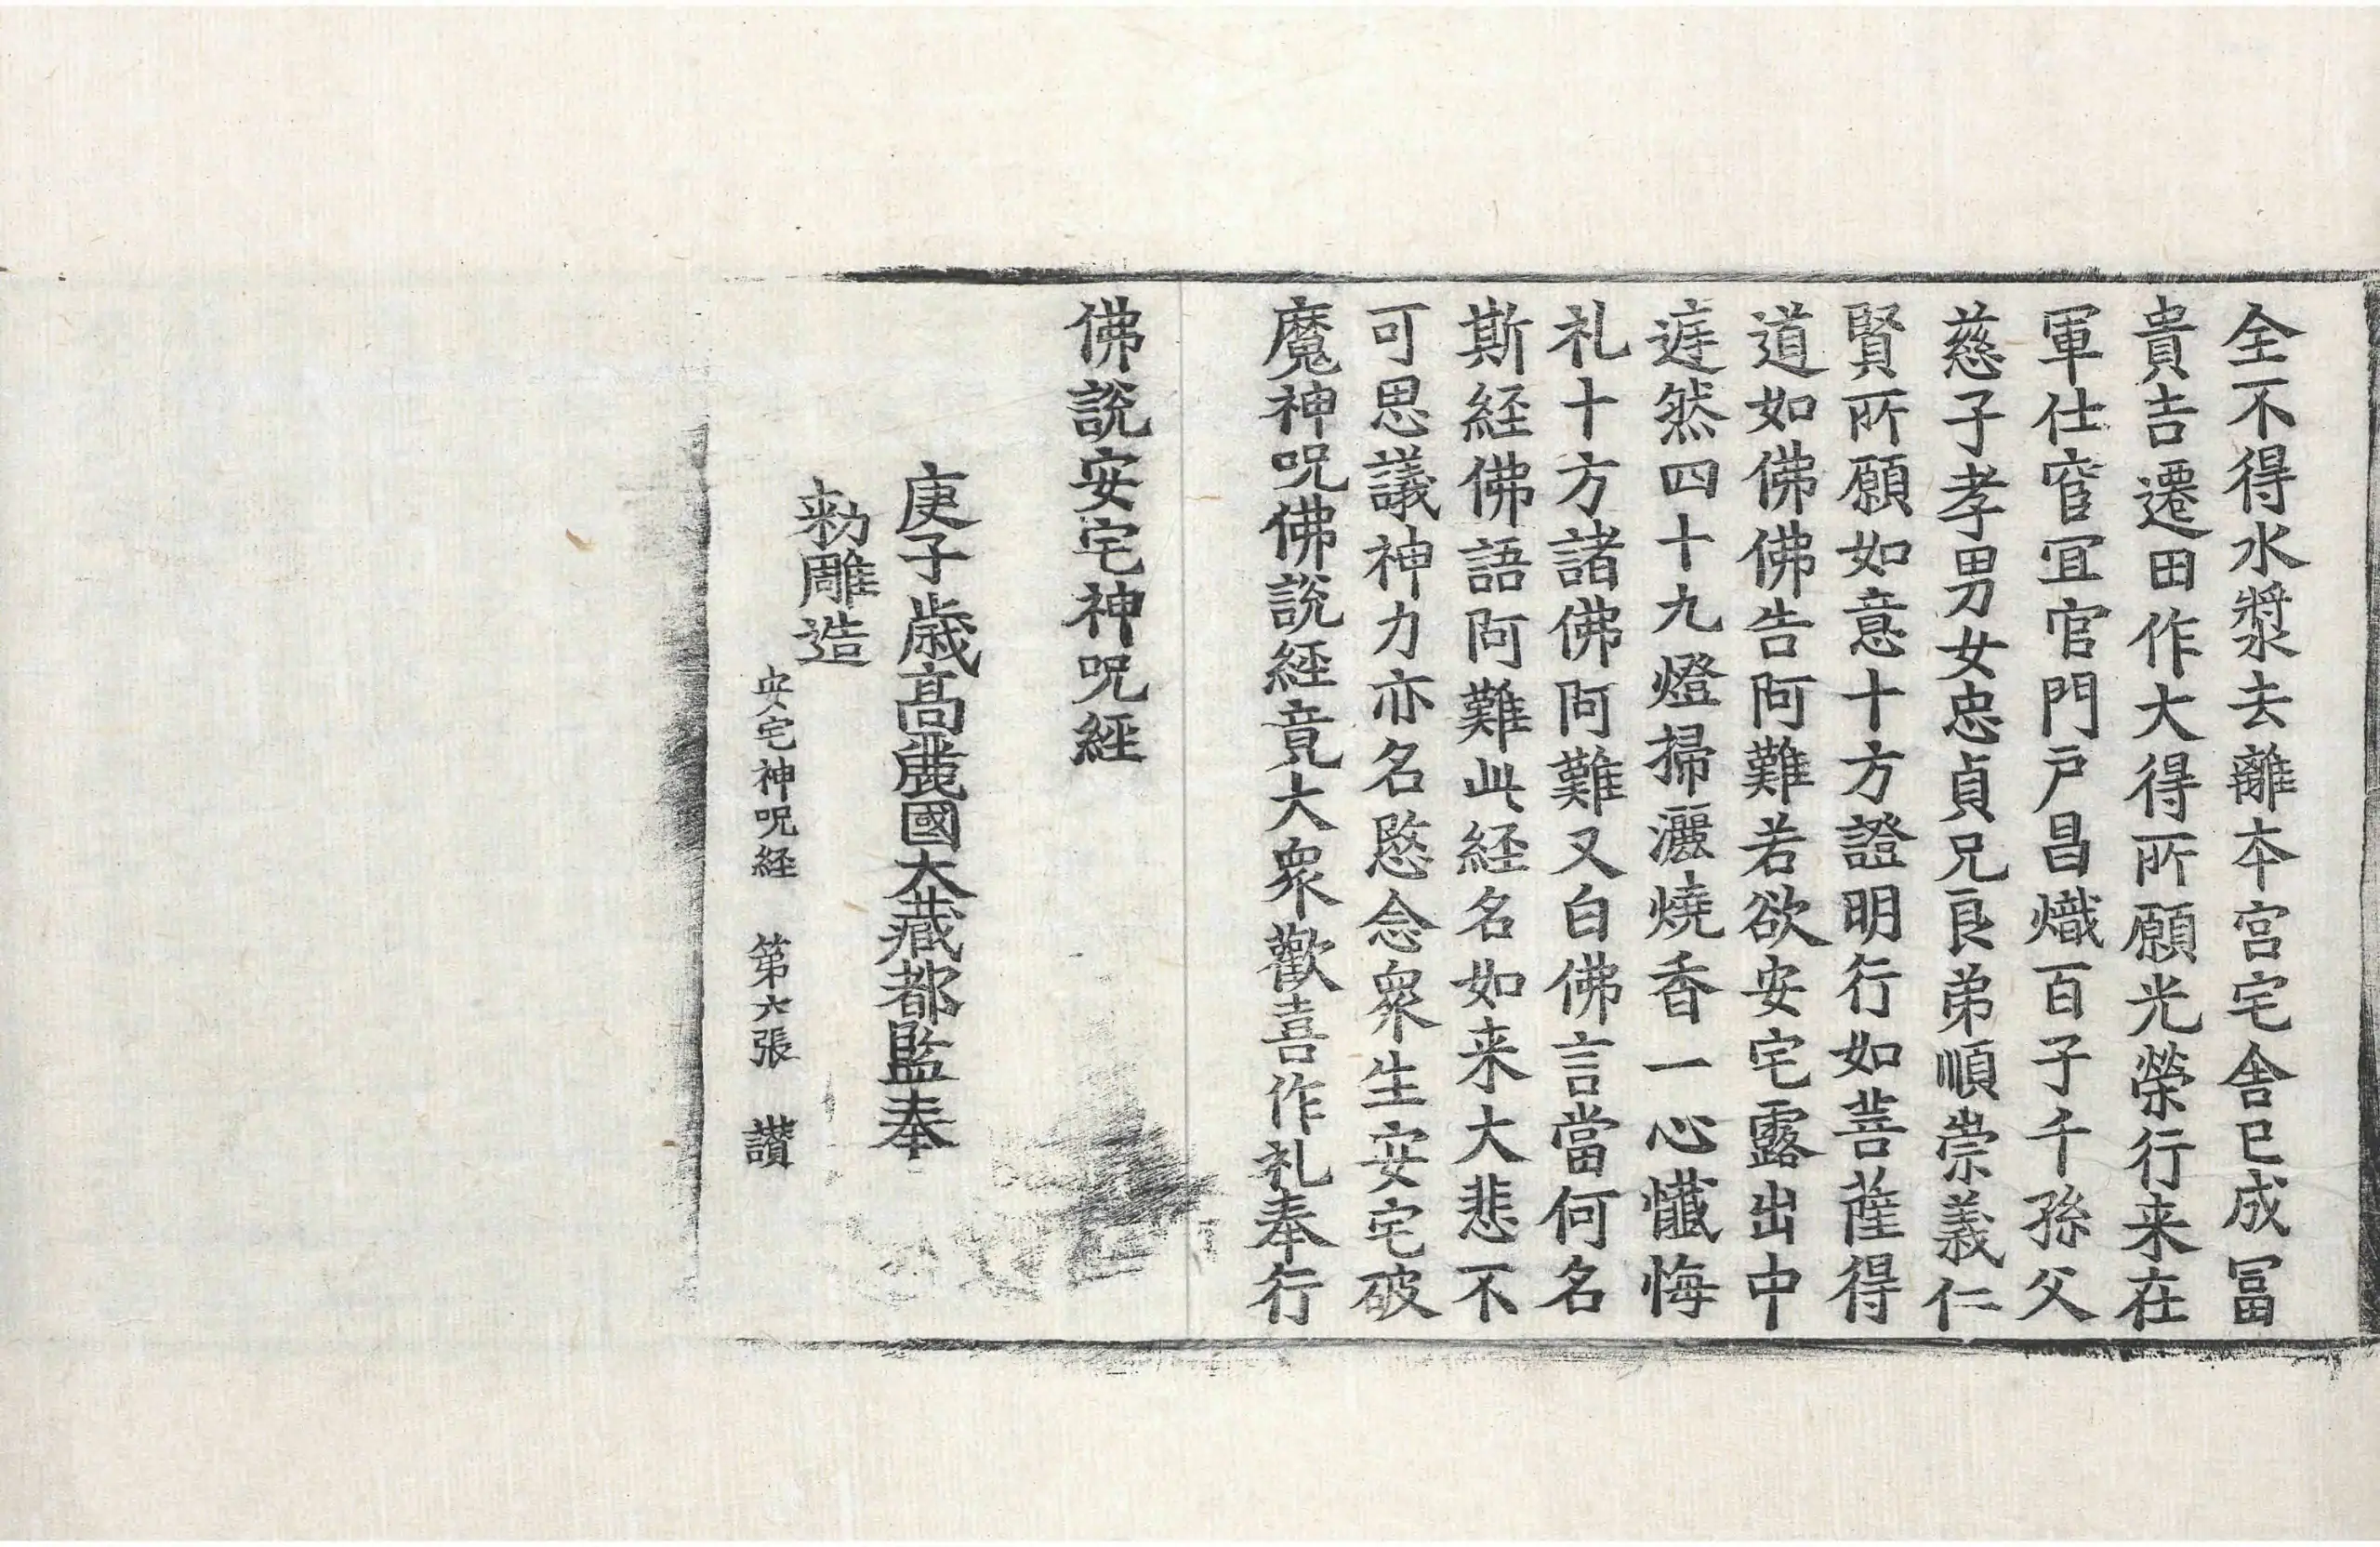 全不得水漿去離本宮宅舍已成冨
貴吉遷田作大得所願光榮行来在
軍仕窅冝官門戶昌熾百子千孫父
慈子孝男女忠貞兄良弟順崇義仁
賢所願如意十方證明行如菩薩得
道如佛佛告阿難若欲安宅露出中
𨓍然四十九燈掃灑燒香一心懺悔
礼十方諸佛阿難又白佛言當何名
斯経佛語阿難此経名如来大悲不
可思議神力亦名愍念衆生安宅破
魔神呪佛說経竟大衆歡喜作礼奉行
佛說安宅神呪經
庚子歲高麗國大藏都監奉
勑雕造
安宅神呪経 第六張 讃